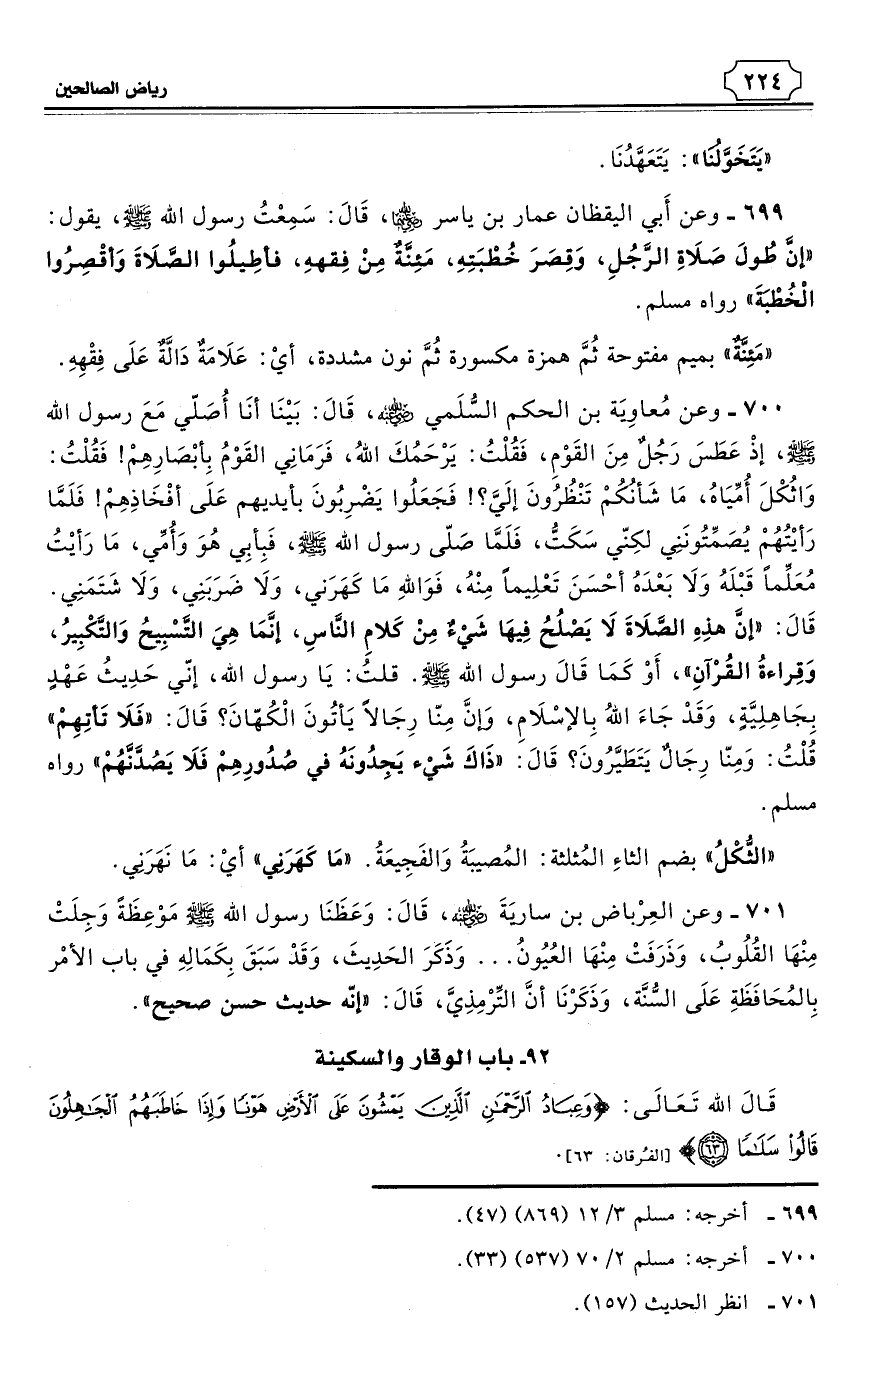 ٢٢٤
رياض الصالحين
«يَتَخَوَّلُنَا»: يَتَعَهَّدُنَا.
٦٩٩ ـ وعن أَبي اليقظان عمار بن ياسر رضي الله عنهما، قَالَ: سَمِعْتُ رسول الله ﷺ، يقول:
«إنَّ طُولَ صَلَاةِ الرَّجُلِ، وَقِصَرَ خُطْبَتِهِ، مَئِنَّةٌ مِنْ فِقهِهِ، فأطِيلُوا الصَّلَاةَ وَأقْصِرُوا
الْخُطْبَةَ» رواه مسلم.
«مَئِنَّةٌ» بميم مفتوحة ثُمَّ همزة مكسورة ثُمَّ نون مشددة، أيْ: عَلَامَةٌ دَالَّةٌ عَلَى فِقْهِهِ.
٧٠٠ ـ وعن مُعاوِيَة بن الحكم السُّلَمي رضي الله عنه، قَالَ: بَيْنَا أنَا أُصَلّي مَعَ رسول الله
ﷺ، إذْ عَطَسَ رَجُلٌ مِنَ القَوْمِ، فَقُلْتُ: يَرْحَمُكَ اللهُ، فَرَمَانِي القَوْمُ بِأبْصَارِهِمْ! فَقُلْتُ:
وَاثُكْلَ أُمِّيَاهُ، مَا شَأنُكُمْ تَنْظُرُونَ إلَيَّ؟! فَجَعَلُوا يَضْرِبُونَ بأيديهم عَلَى أفْخَاذِهِمْ! فَلَمَّا
رَأيْتُهُمْ يُصَمِّتُونَنِي لكِنّي سَكَتُّ، فَلَمَّا صَلّى رسول الله ﷺ، فَبِأبِي هُوَ وَأُمِّي، مَا رَأيْتُ
مُعَلِّماً قَبْلَهُ وَلَا بَعْدَهُ أحْسَنَ تَعْلِيماً مِنْهُ، فَوَاللهِ مَا كَهَرَني، وَلَا ضَرَبَنِي، وَلَا شَتَمَنِي.
قَالَ: «إنَّ هذِهِ الصَّلَاةَ لَا يَصْلُحُ فِيهَا شَيْءٌ مِنْ كَلامِ النَّاسِ، إنَّمَا هِيَ التَّسْبِيحُ وَالتَّكْبِيرُ،
وَقِراءةُ القُرْآنِ»، أَوْ كَمَا قَالَ رسول الله ﷺ. قلتُ: يَا رسول الله، إنّي حَدِيثُ عَهْدٍ
بِجَاهِلِيَّةٍ، وَقَدْ جَاءَ اللهُ بِالإسْلَامِ، وَإنَّ مِنّا رِجَالاً يَأتُونَ الْكُهّانَ؟ قَالَ: «فَلَا تَأتِهِمْ»
قُلْتُ: وَمِنّا رِجَالٌ يَتَطَيَّرُونَ؟ قَالَ: «ذَاكَ شَيْء يَجِدُونَهُ في صُدُورِهِمْ فَلَا يَصُدَّنَّهُمْ» رواه
مسلم.
«الثُّكْلُ» بضم الثاءِ المُثلثة: المُصيبَةُ وَالفَجِيعَةُ. «مَا كَهَرَنِي» أيْ: مَا نَهَرَنِي.
٧٠١ ـ وعن العِرْباض بن ساريَةَ رضي الله عنه، قَالَ: وَعَظَنَا رسول الله ﷺ مَوْعِظَةً وَجِلَتْ
مِنْهَا القُلُوبُ، وَذَرَفَتْ مِنْهَا العُيُونُ... وَذَكَرَ الحَدِيثَ، وَقَدْ سَبَقَ بِكَمَالِهِ في باب الأمْر
بِالمُحَافَظَةِ عَلَى السُّنَّة، وَذَكَرْنَا أنَّ التِّرْمِذِيَّ، قَالَ: «إنّه حديث حسن صحيح».
٩٢ـ باب الوقار والسكينة
قَالَ الله تَعَالَى: ﴿وَعِبَادُ ٱلرَّحْمَٰنِ ٱلَّذِينَ يَمْشُونَ عَلَى ٱلْأَرْضِ هَوْنًا وَإِذَا خَاطَبَهُمُ ٱلْجَٰهِلُونَ
قَالُواْ سَلَٰمًا ٦٣﴾ [الفُرقان: ٦٣].
٦٩٩ ـ أخرجه: مسلم ٣/ ١٢ (٨٦٩) (٤٧).
٧٠٠ ـ أخرجه: مسلم ٢/ ٧٠ (٥٣٧) (٣٣).
٧٠١ ـ انظر الحديث (١٥٧).